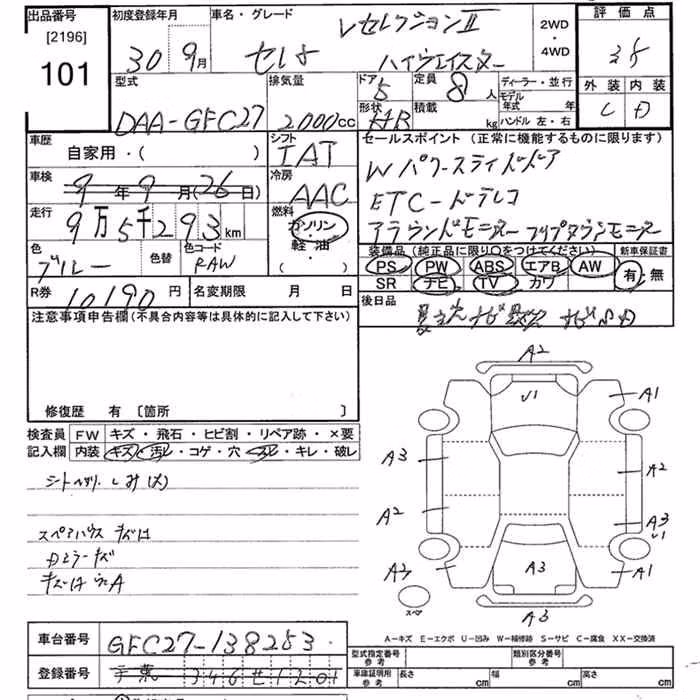 出品番号
[2196]
101
初度登録年月
30年 9月
車名・グレード
セレナ
Vセレクション II
ハイウェイスター
2WD
・
4WD
評価点
外装 内装
型式
DAA-GFC27
排気量
2000cc
ドア 5
形状
定員 8人
積載 kg
ディーラー・並行
モデル年式 年
ハンドル 左・右
車歴
自家用・( )
シフト
IAT
車検
9年9月26日
冷房
AAC
走行
9万5千293km
燃料
ガソリン
軽・油
( )
色
ブルー
色替
色コード
RAW
セールスポイント (正常に機能するものに限ります)
Wパワースライドドア
ETC-ドラレコ
アラウンドモニター フリップダウンモニター
装備品(純正品に限り○をつけてください) 新車保証書
PS PW ABS エアB AW 有・無
SR ナビ TV カワ
R券 10190円
名変期限 月 日
後日品
注意事項申告欄(不具合内容等は具体的に記入して下さい)
修復歴 有 [箇所 ]
検査員記入欄
FW キズ・飛石・ヒビ割・リペア跡・×要
内装 キズ・汚レ・コゲ・穴・スレ・キレ・破レ
A2
U1
A1
A3
A2
A2
A3
U1
A2
A3
A1
スペア
A3
A-キズ E-エクボ U-凹み W-補修跡 S-サビ C-腐食 XX-交換済
車台番号
GFC27-138253
登録番号
千葉 346 せ 1201
型式指定番号 参考
類別区分番号 参考
車庫証明用 参考
長さ cm
幅 cm
高さ cm